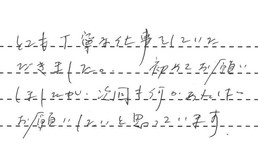 とても丁寧な仕事をしていた
だきました。 初めてお願い
しましたが、次回も何かあれば
お願いしたいと思っています。